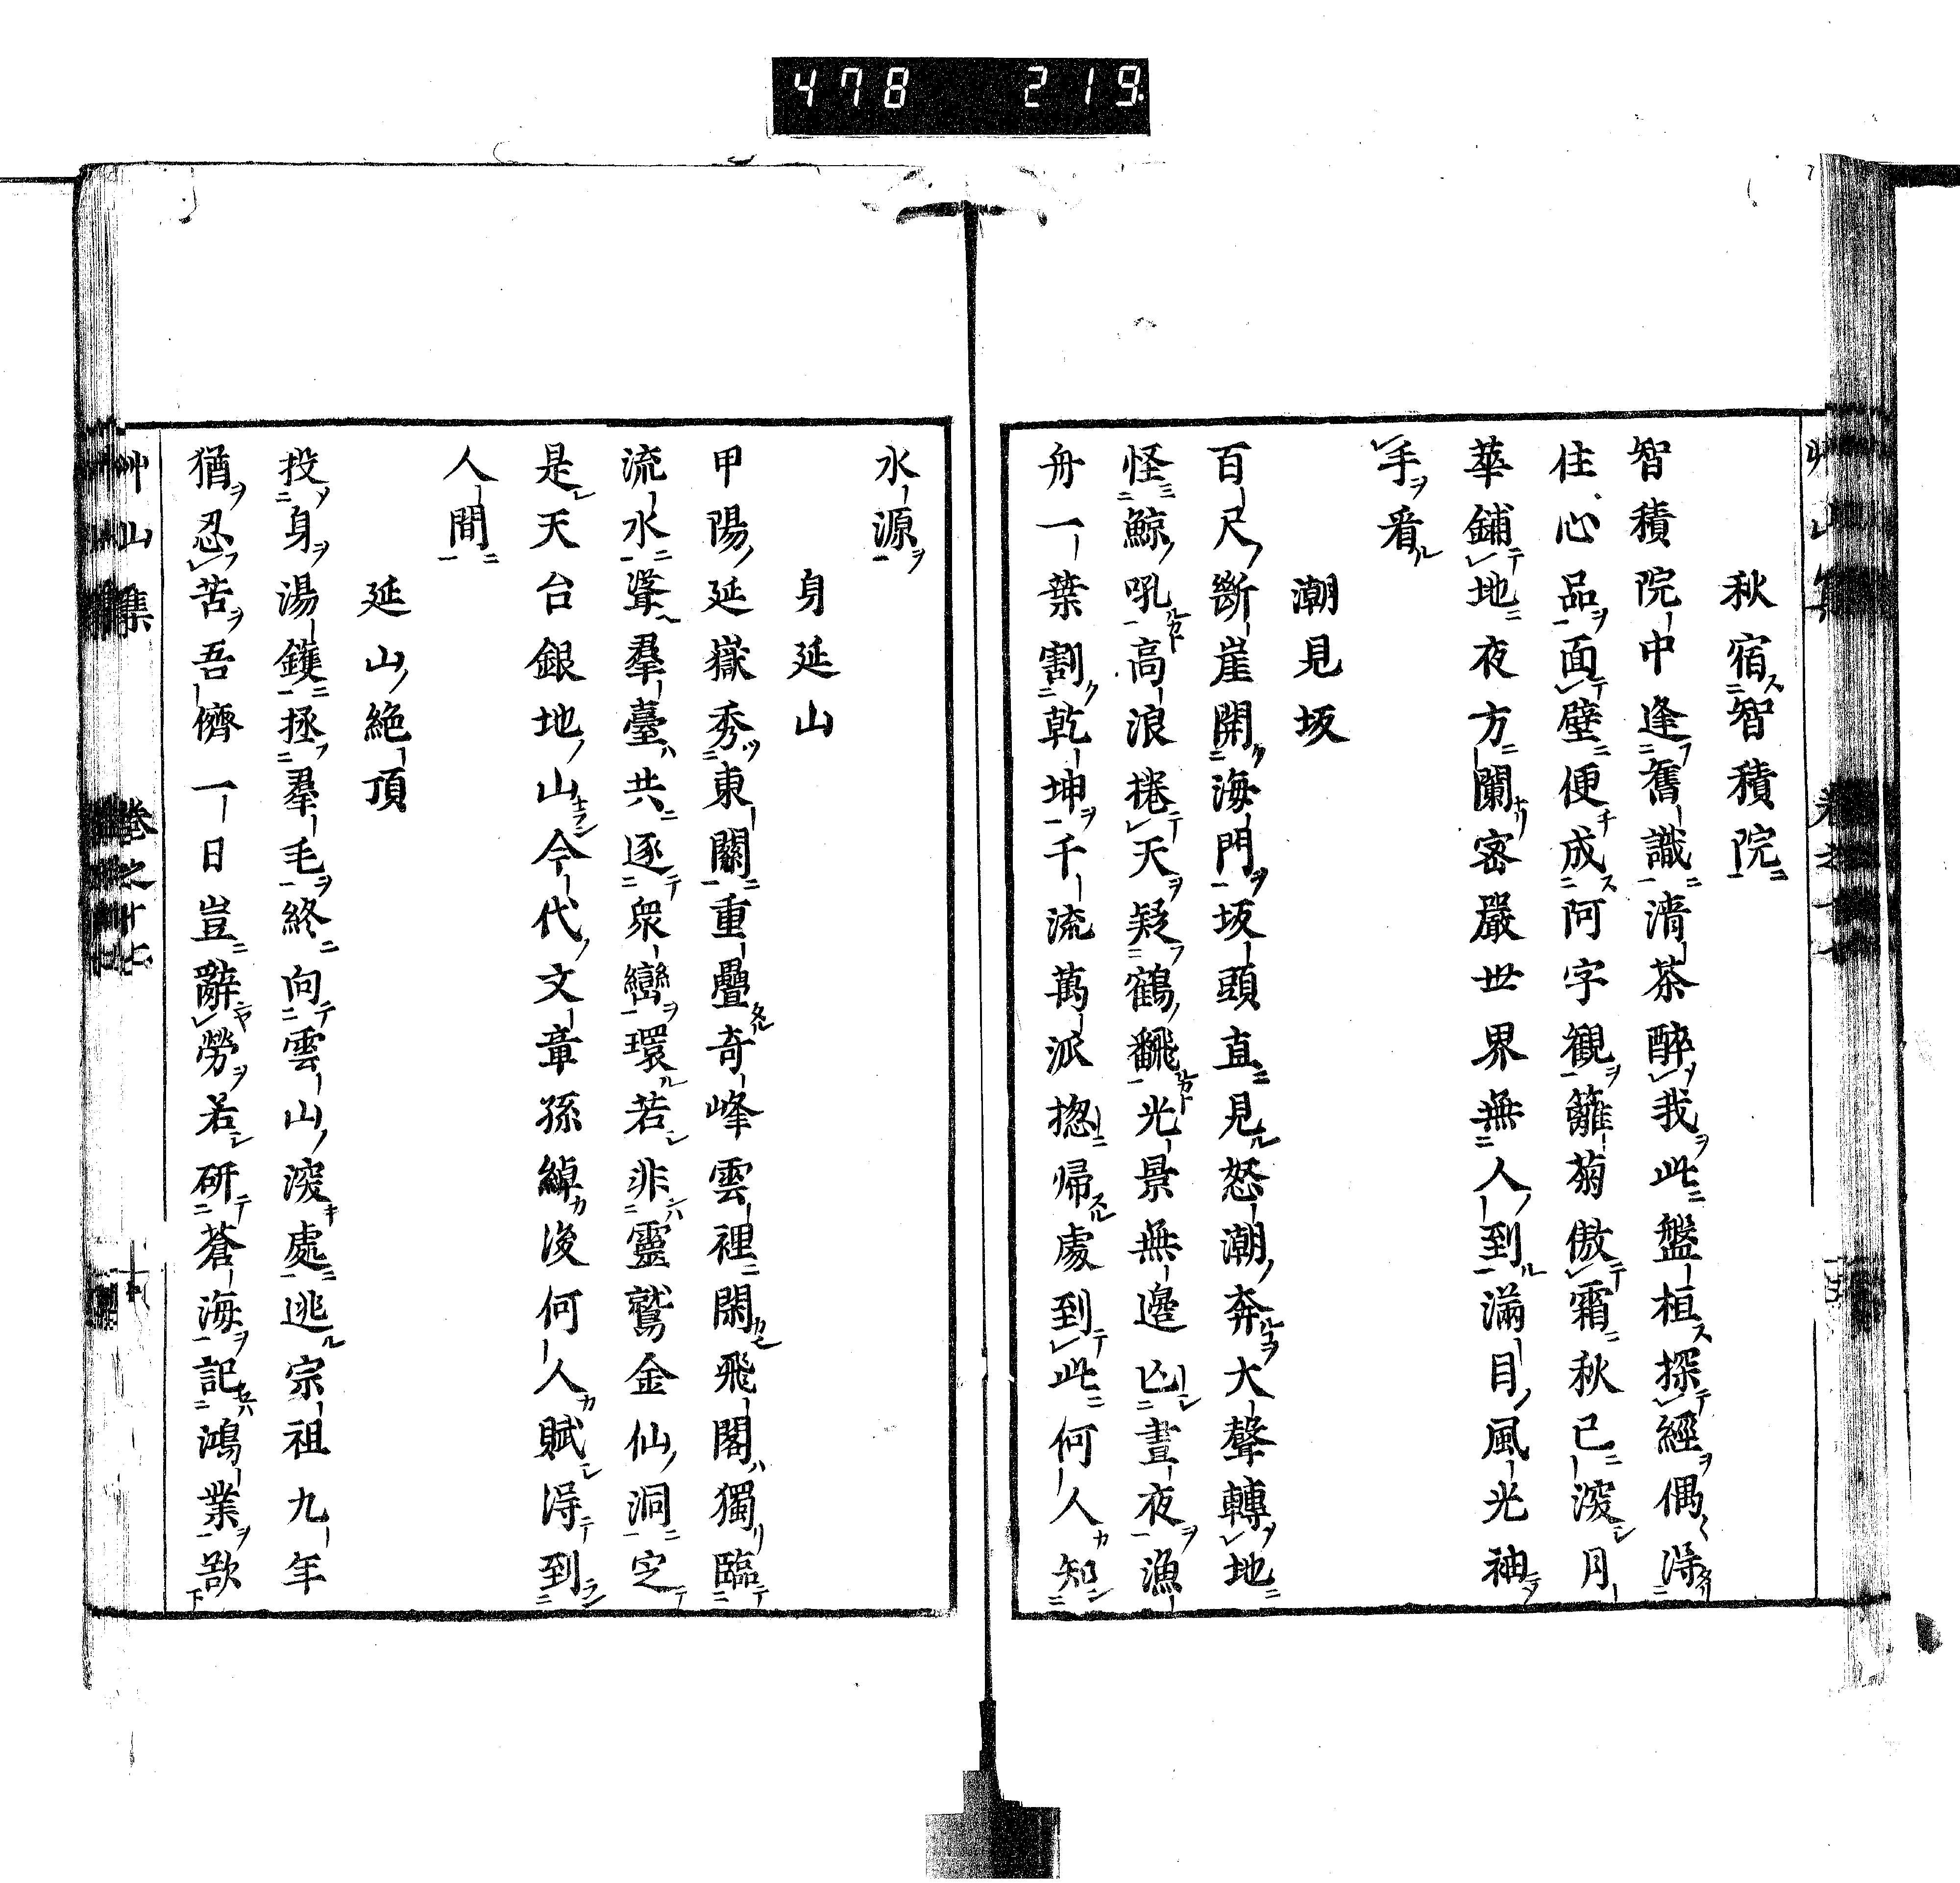 478 219
秋宿智積院
智積院中逢舊識清茶醉我此盤桓探經偶得
住心品面壁便成阿字觀籬菊傲霜秋已深月
華鋪地夜方闌密嚴世界無人到滿目風光袖
手看
潮見坂
百尺斷崖開海門坂頭直見怒潮奔大聲轉地
怪鯨吼高浪捲天疑鶴飜光景無邊亾晝夜漁
舟一葉割乾坤千流萬派揔帰處到此何人知
水源
身延山
甲陽延嶽秀東關重疊奇峰雲裡閑飛閣獨臨
流水聳羣臺共逐衆巒環若非靈鷲金仙洞定
是天台銀地山今代文章孫綽後何人賦得到
人間
延山絶頂
投身湯鑊拯羣毛終向雲山深處逃宗祖九年
猶忍苦吾儕一日豈辭勞若研蒼海記鴻業歃
艸山集 卷之十七 十